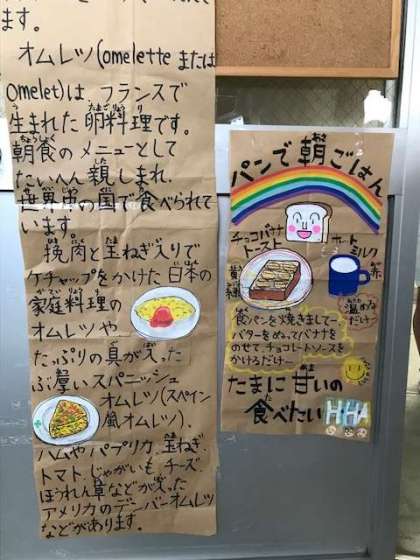 ます。
オムレツ(omeletteまたは
omelet)は、フランスで
生まれた卵料理です。
朝食のメニューとして
たいへん親しまれ、
世界中の国で食べられて
います。
挽肉と玉ねぎ入りで
ケチャップをかけた日本の
家庭料理の
オムレツや
たっぷりの具が入った
ぶ厚いスパニッシュ
オムレツ(スペイン
風オムレツ)、
ハムやパプリカ、玉ねぎ、
トマト、じゃがいも、チーズ、
ほうれん草などが入った
アメリカのデーバーオムレツ
などがあります。
パンで朝ごはん
チョコバナナ
トースト
ホット
ミルク
食パンを焼きましてー
バターをぬってバナナを
のせてチョコレートソースを
かけるだけー
温めるだけー
たまに甘いの
食べたい
HHA